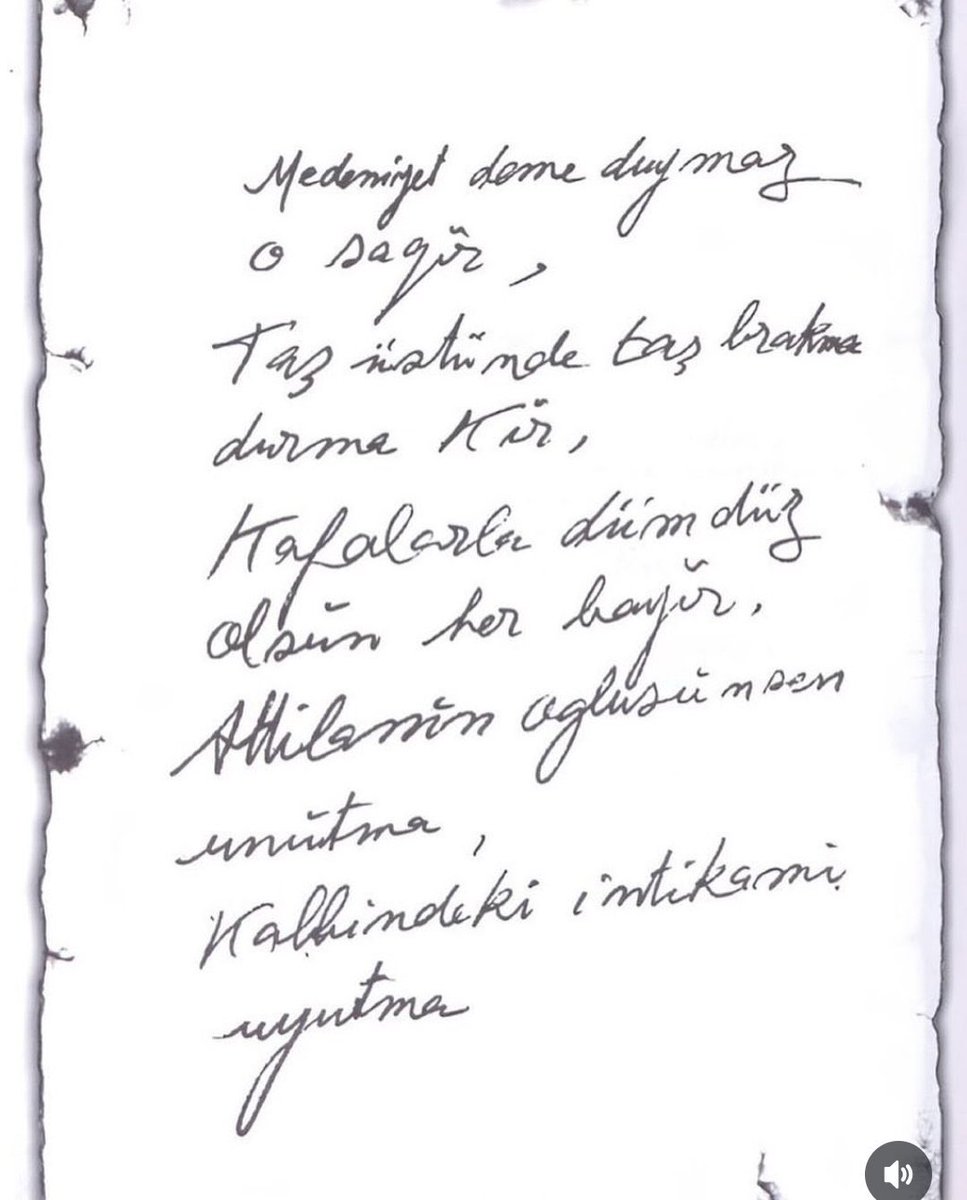 Medeniyet deme duymaz
o sağır,
Taş üstünde taş brakma
durma Kır,
Kafalarla dümdüz
olsün her bayır.
Attilanın oglusün sen
unütma,
Kalbindeki intikami
uyutma